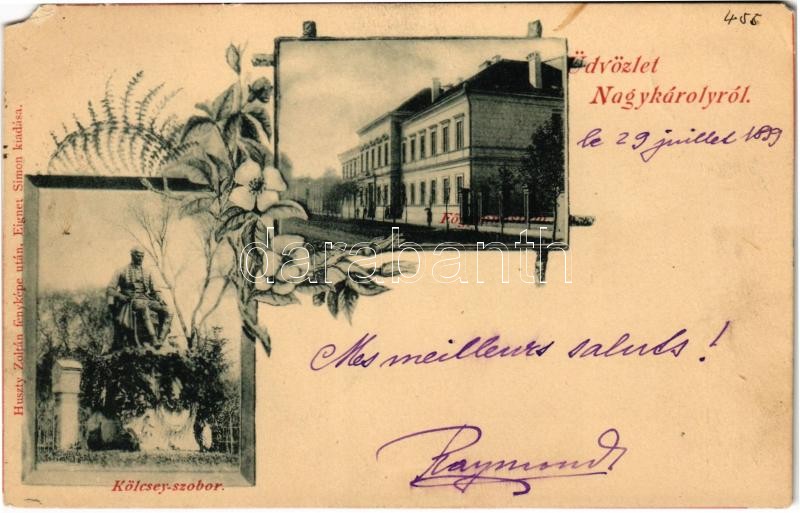 455
Üdvözlet
Nagykárolyról.
le 29 juillet 1899
Huszty Zoltán fényképe után, Eignet Simon kiadása.
darabanth
Mes meilleurs saluts!
Raymond
Kölcsey-szobor.